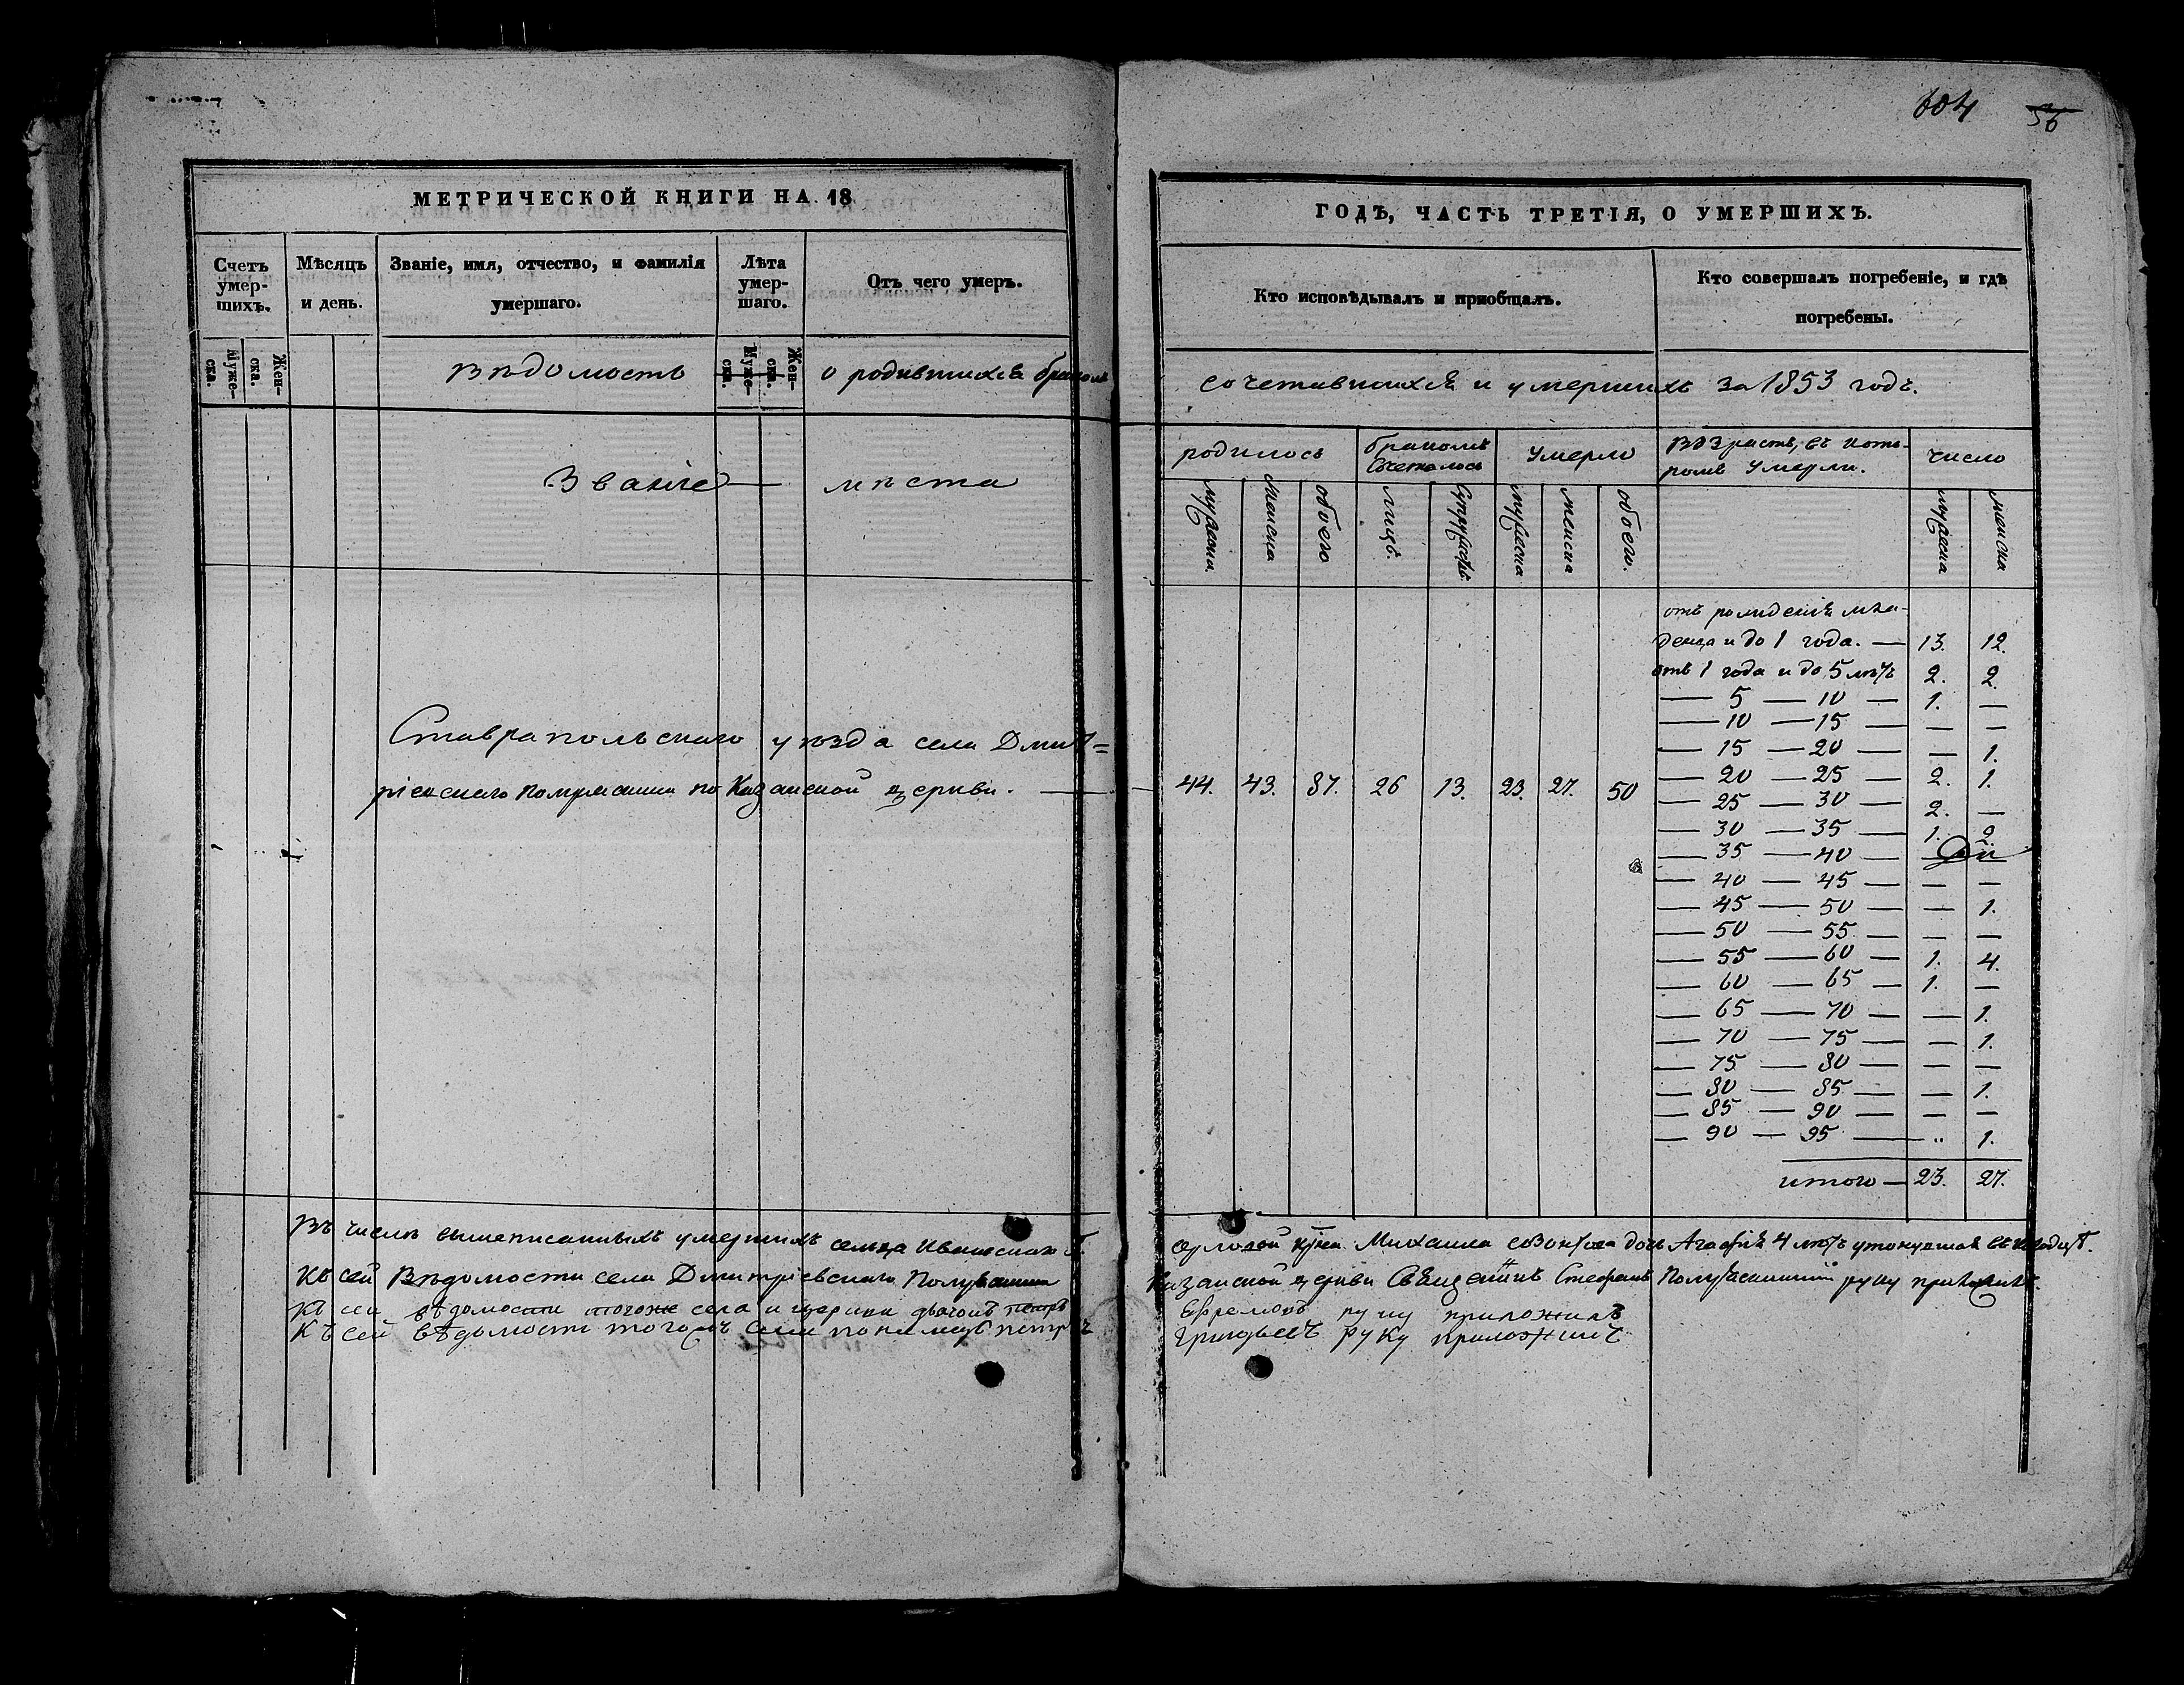 604 56
МЕТРИЧЕСКОЙ КНИГИ НА 18
Счетъ умер-шихъ.
Мѣсяцъ и день.
Званіе, имя, отчество, и фамилія умершаго.
Лѣта умер-шаго.
Отъ чего умеръ.
Муже-ска.
Жен-ска.
Муже-ска.
Жен-ска.
ГОДЪ, ЧАСТЬ ТРЕТІЯ, О УМЕРШИХЪ.
Кто исповѣдывалъ и приобщалъ.
Кто совершалъ погребеніе, и гдѣ погребены.
Вѣдомость о родившихся бракомъ сочетавшихся и умершихъ за 1853 годъ.
Званіе — мѣста
родилось
бракомъ сочеталось
умерло
Возрастъ, въ кото-
ромъ умерли.
число
мужеска.
женска
обоего
лицъ.
супружествъ
мужеска
женска
обоего.
мужеска
женска
Ставропольскаго уѣзда села Дмит=
ріевскаго по Казанской церкви. — 44. 43. 87. 26 13. 23. 27. 50
отъ рожденія мла-
денца и до 1 года. — 13. 12.
отъ 1 года и до 5 лѣтъ 2. 2.
— 5 — 10 — 1. —
— 10 — 15 — — —
— 15 — 20 — — 1.
— 20 — 25 — 2. 1.
— 25 — 30 — 2. —
— 30 — 35 — 1. 2
— 35 — 40 —
— 40 — 45 — — —
— 45 — 50 — — 1.
— 50 — 55 — — —
— 55 — 60 — 1. 4.
— 60 — 65 — 1. —
— 65 — 70 — — 1.
— 70 — 75 — — 1.
— 75 — 80 — — —
— 80 — 85 — — 1.
— 85 — 90 — — —
— 90 — 95 — „ 1.
итого — 23. 27.
Въ числѣ вышеписанныхъ умершихъ сельца Михаила Созонтова дочь Агафія 4 лѣтъ утонувшая въ
Къ сей Вѣдомости села Дмитріевскаго Казанской церкви Священникъ Стефанъ руку приложилъ.
Къ сей вѣдомости тогоже села и церкви дьяконъ Петръ Ефремовъ руку приложилъ
Къ сей вѣдомости тогожъ села пономарь Петръ Григорьевъ руку приложилъ